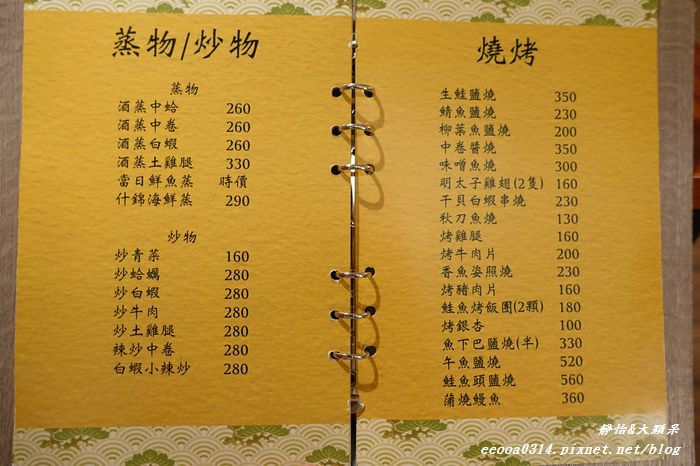 蒸物/炒物
蒸物
酒蒸中蛤 260
酒蒸中卷 260
酒蒸白蝦 260
酒蒸土雞腿 330
當日鮮魚蒸 時價
什錦海鮮蒸 290
炒物
炒青菜 160
炒蛤蠣 280
炒白蝦 280
炒牛肉 280
炒土雞腿 280
辣炒中卷 280
白蝦小辣炒 280
燒烤
生鮭鹽燒 350
鯖魚鹽燒 230
柳葉魚鹽燒 200
中卷醬燒 350
味噌魚燒 300
明太子雞翅(2隻) 160
干貝白蝦串燒 230
秋刀魚燒 130
烤雞腿 160
烤牛肉片 200
香魚姿照燒 230
烤豬肉片 160
鮭魚烤飯團(2顆) 180
烤銀杏 100
魚下巴鹽燒(半) 330
午魚鹽燒 520
鮭魚頭鹽燒 560
蒲燒鰻魚 360
靜怡&大顆呆
ccooa0314.pixnet.net/blog